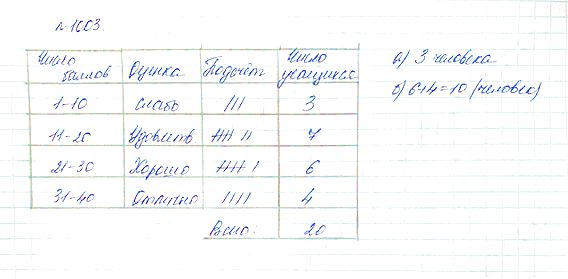 №1003.
Число баллов | Оценка | Подсчёт | Число учащихся
1-10 | слабо | III | 3
11-20 | Удовлетв | HHI II | 7
21-30 | Хорошо | HHI I | 6
31-40 | Отлично | IIII | 4
Всего: | 20
а) 3 человека
б) 6+4=10 (человек)